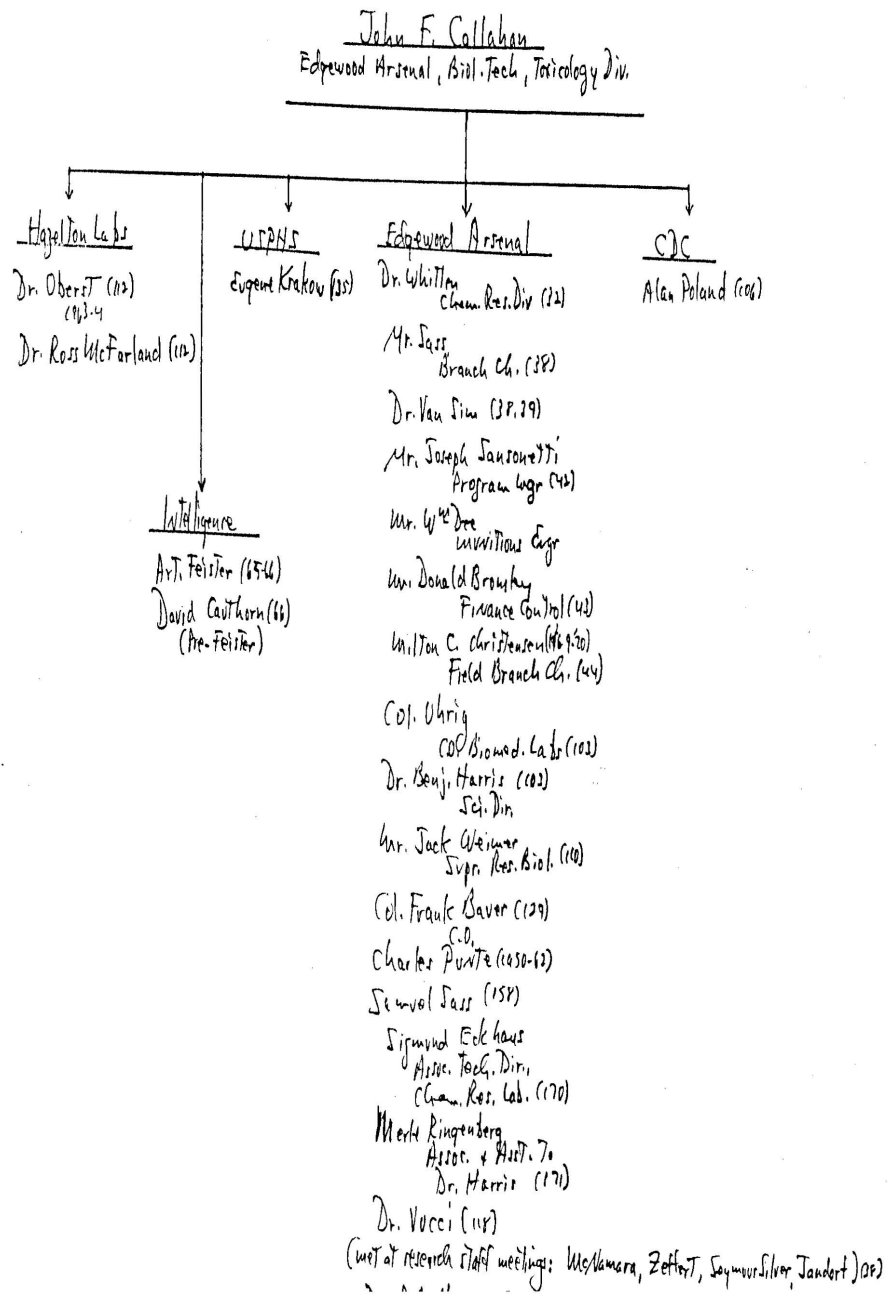 John F. Callahan
Edgewood Arsenal, Biol. Tech, Toxicology Div.
Hazelton Labs
Dr. Oberst (112)
1963-4
Dr. Ross McFarland (112)
USPHS
Eugene Krakow (135)
Edgewood Arsenal
Dr. Whitten
Chem. Res. Div (32)
Mr. Sass
Branch Ch. (38)
Dr. Van Sim (38,39)
Mr. Joseph Sansonetti
Program Mgr (42)
Mr. Wm Dee
Munitions Engr
Mr. Donald Bromley
Finance Control (43)
Milton C. Christensen
Field Branch Ch. (44)
Col. Uhrig
Biomed. Labs (102)
Dr. Benj. Harris (102)
Sci. Dir.
Mr. Jack Weimer
Supr. Res. Biol. (110)
Col. Frank Bauer (129)
C.O.
Charles Punte (1950-62)
Samuel Sass (158)
Sigmund Eckhaus
Assoc. Tech. Dir.,
Chem. Res. Lab. (170)
Merle Ringenberg
Assoc. + Asst. To
Dr. Harris (171)
Dr. Vocci (118)
(met at research staff meetings: McNamara, Zeffert, Seymour Silver, Jandorf)
CDC
Alan Poland (106)
Intelligence
Art. Feister (65-66)
David Cauthorn (66)
(Pre-Feister)